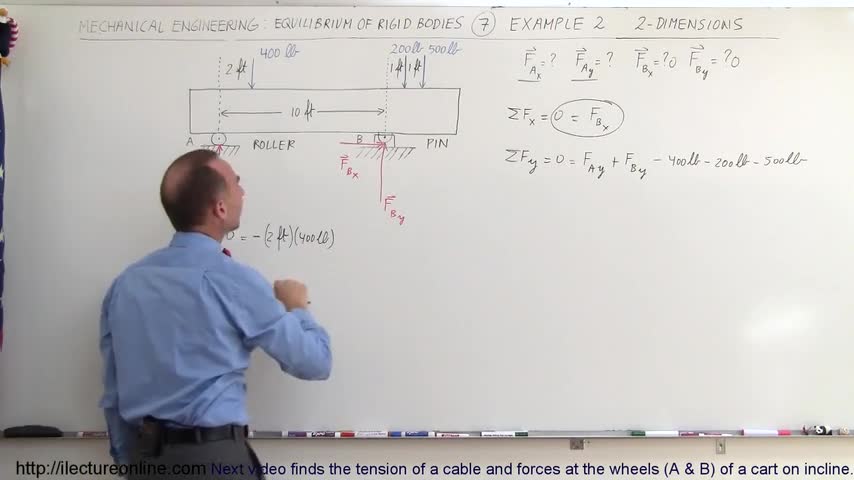 MECHANICAL ENGINEERING: EQUILIBRIUM OF RIGID BODIES 7 EXAMPLE 2 2-DIMENSIONS
400 lb 200lb 500lb
2 ft 1 ft 1 ft
10 ft
A ROLLER B PIN
F_Bx
F_By
0 = -(2 ft)(400 lb)
F_Ax = ? F_Ay = ? F_Bx = ? 0 F_By = ? 0
ΣF_x = 0 = F_Bx
ΣF_y = 0 = F_Ay + F_By - 400lb - 200lb - 500lb
http://ilectureonline.com Next video finds the tension of a cable and forces at the wheels (A & B) of a cart on incline.